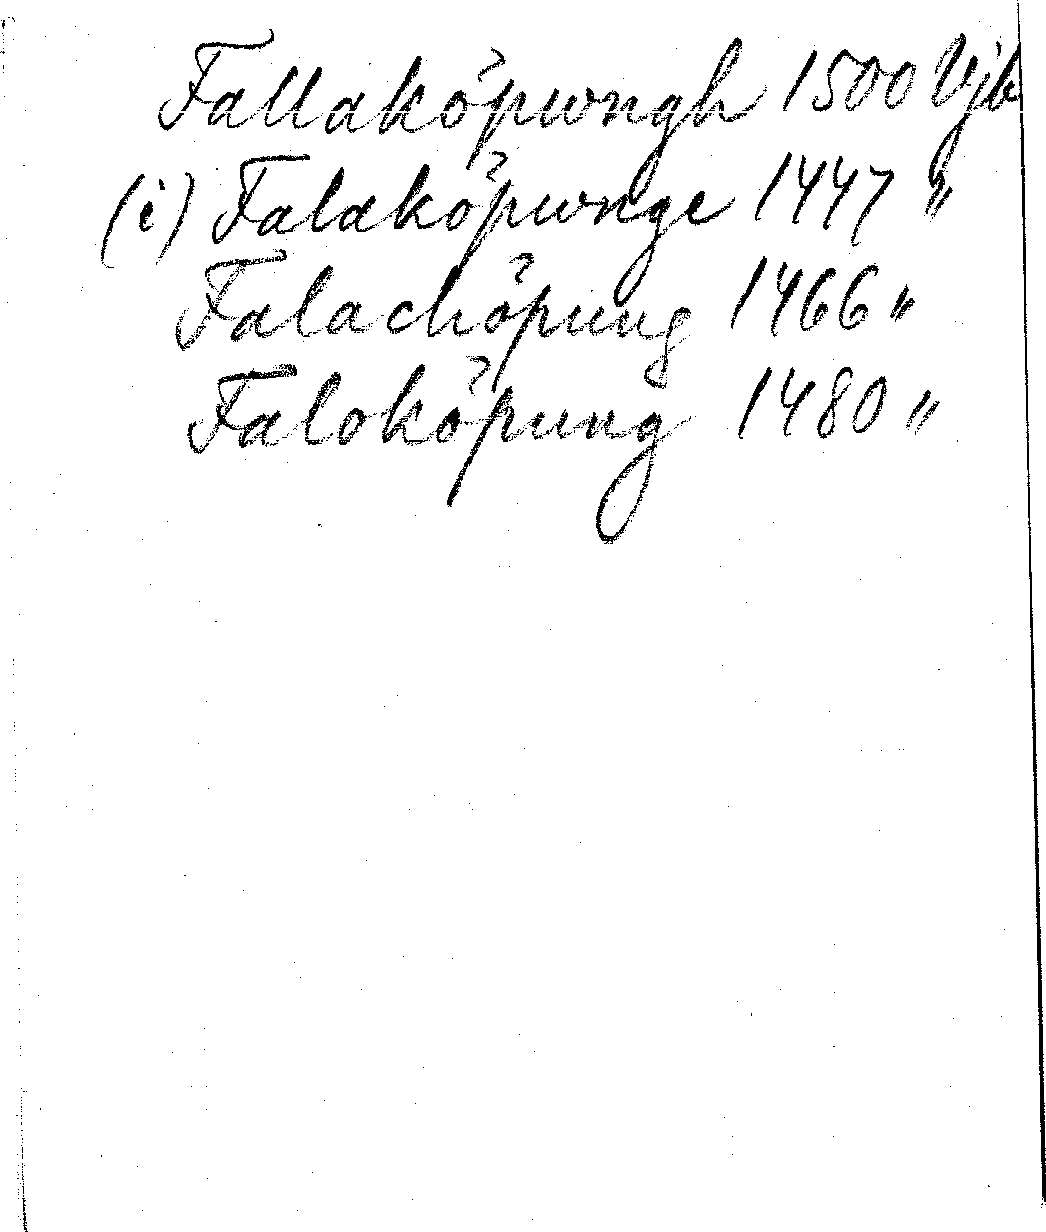 Fallaköpungh 1500 Vjb
(i) Falaköpunge 1447 "
Falachöpung 1466 "
Faloköpung 1480 "